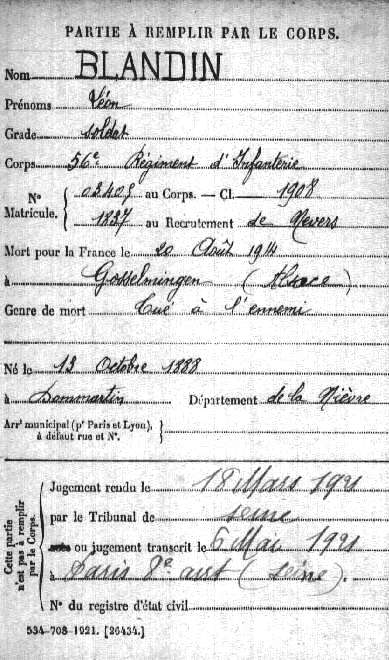 PARTIE À REMPLIR PAR LE CORPS.
Nom BLANDIN
Prénoms Léon
Grade soldat
Corps 56e Régiment d'Infanterie
No 03405 au Corps. — Cl. 1908
Matricule. 1837 au Recrutement de Nevers
Mort pour la France le 20 Août 1914
à Gosselmingen (Alsace)
Genre de mort Tué à l'ennemi
Né le 13 Octobre 1888
à Dommartin Département de la Nièvre
Arrt municipal (pr Paris et Lyon),
à défaut rue et No.
Cette partie
n'est pas à remplir
par le Corps.
Jugement rendu le 18 Mars 1921
par le Tribunal de Seine
ou jugement transcrit le 6 Mai 1921
à Paris 8e arrt (Seine).
No du registre d'état civil
534-708-1921. [26434.]